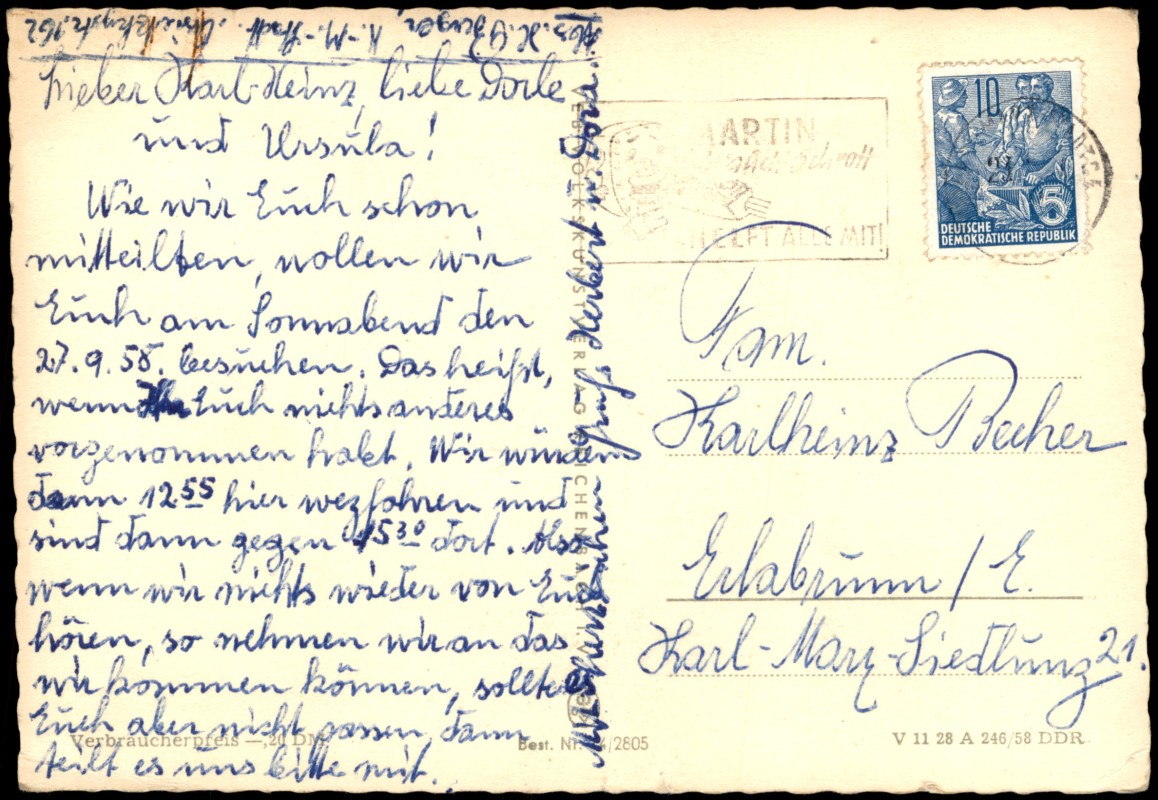 Abs. H. Junger, K.-M.-Stadt. 162
Lieber Karl-Heinz, liebe Dorle
und Ursula!
Wie wir Euch schon
mitteilten, wollen wir
Euch am Sonnabend den
27.9.58. besuchen. Das heißt,
wenn Euch nichts anderes
vorgenommen habt. Wir würden
dann 12.55 hier wegfahren und
sind dann gegen 15 30 dort. Also
wenn wir nichts wieder von Euch
hören, so nehmen wir an das
wir kommen können, sollte es
Euch aber nicht passen, dann
teilt es uns bitte mit.
Mit herzlichem Gruß Herbert u. Dora.
MARTIN
Schrott
HELFT ALLE MIT!
10
5
DEUTSCHE
DEMOKRATISCHE REPUBLIK
Fam.
Karlheinz Becher
Erlabrunn / E.
Karl-Marx-Siedlung 21.
VEB VOLKSKUNSTVERLAG REICHENBACH
Verbraucherpreis —,20 DM
Best. Nr. /2805
V 11 28 A 246/58 DDR